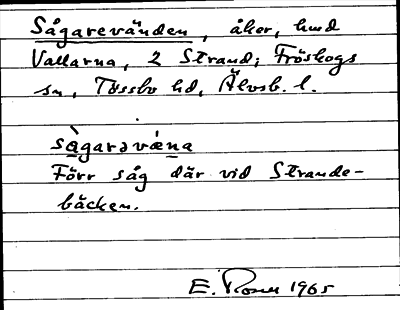 Sågarevänden, åker, hmd
Vallarna, 2 Strand; Fröskogs
sn, Tössbo hd, Älvsb. l.
sàgarəvǽna
Förr såg där vid Strande-
bäcken.
E. Rosén 1965